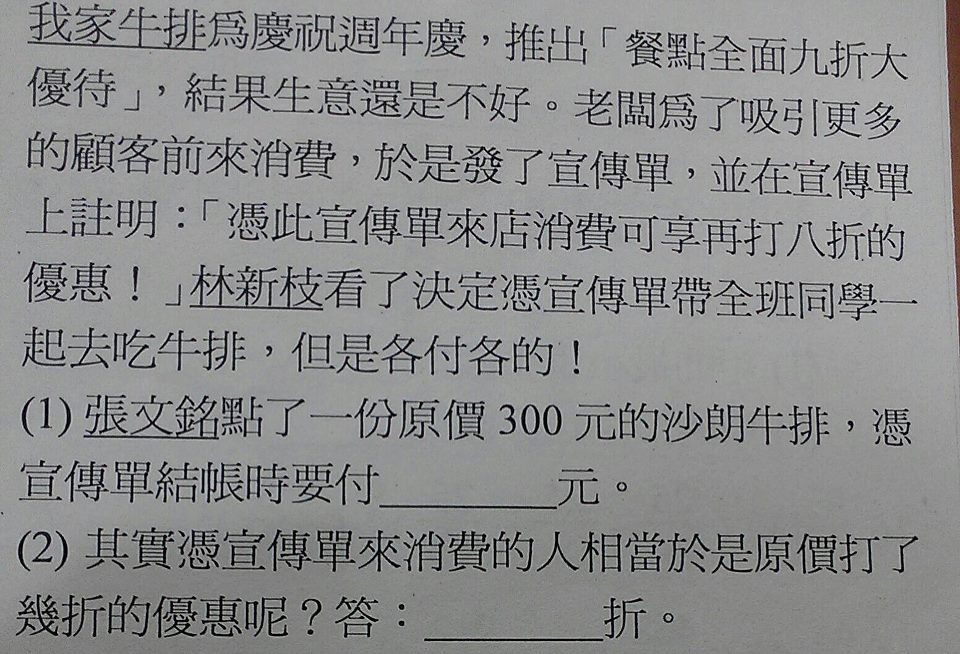 我家牛排爲慶祝週年慶，推出「餐點全面九折大
優待」，結果生意還是不好。老闆爲了吸引更多
的顧客前來消費，於是發了宣傳單，並在宣傳單
上註明：「憑此宣傳單來店消費可享再打八折的
優惠！」林新枝看了決定憑宣傳單帶全班同學一
起去吃牛排，但是各付各的！
(1) 張文銘點了一份原價 300 元的沙朗牛排，憑
宣傳單結帳時要付________元。
(2) 其實憑宣傳單來消費的人相當於是原價打了
幾折的優惠呢？答：________折。